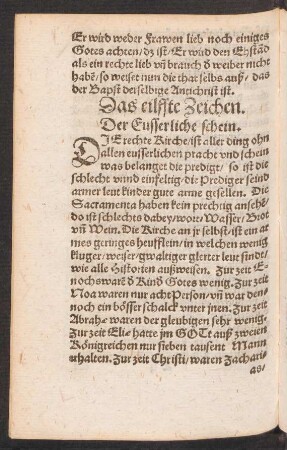 Er wird weder Frawen lieb noch einiges
Gotes achten/dz ist/Er wird den Ehstãd
als ein rechte lieb vñ brauch d̓ weiber nicht
habẽ/so weiset nun die that selbs auß/das
der Bapst derselbige Antichrist ist.
Das eilffte Zeichen.
Der Eusserliche schein.
DIE rechte Kirche/ist aller ding ohn
allen eusserlichen pracht vnd schein
was belanget die predigt/so ist die
schlecht vnnd einfeltig/die Prediger seind
armer leut kinder gute arme gesellen. Die
Sacramenta haben kein prechtig ansehẽ/
do ist schlechts dabey/wort/Wasser/Brot
vñ Wein. Die Kirche an jr selbst/ist ein ar
mes geringes heufflein/in welchen wenig
kluger/weiser/gwaltiger glerter leut sindt/
wie alle Historien außweisen. Zur zeit E-
nochs warẽ d̓ Kind Gotes wenig. Zur zeit
Noa waren nur acht Person/vñ war den-
noch ein bösser schalck vnter jnen. Zur zeit
Abrahę waren der gleubigen sehr wenig.
Zur zeit Elię hatte jm GOTt auß zweien
Königreichen nur sieben tausent Mann
erhalten. Zur zeit Christi/waren Zachari-
as/